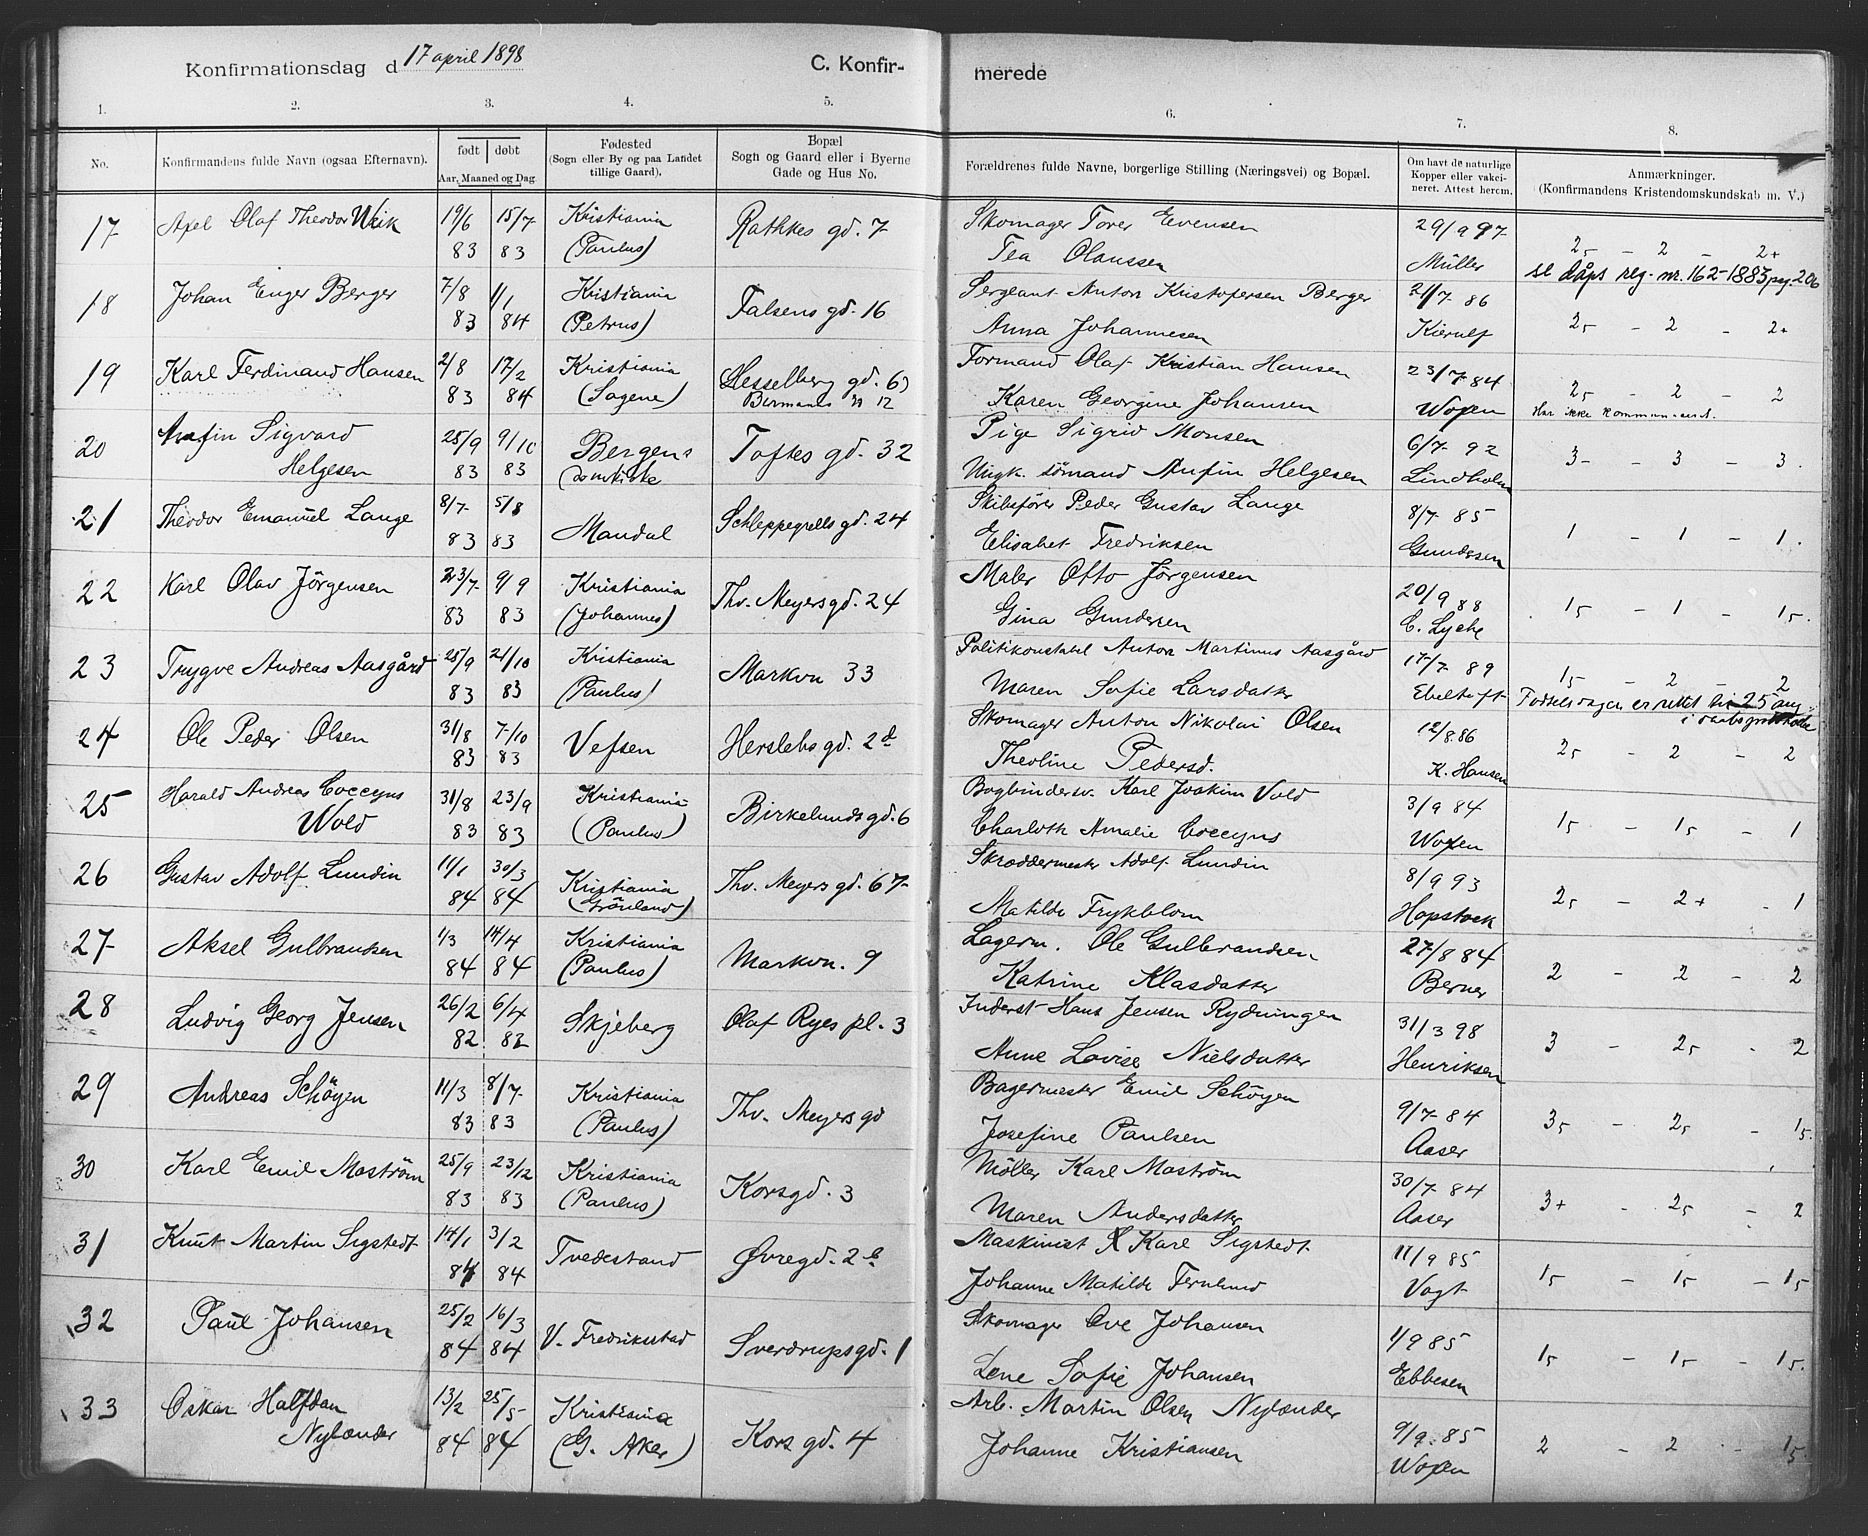 Konfirmationsdag d 17 april 1898 C. Konfir- merede
1. 2. 3. 4. 5. 6. 7. 8.
No.
Konfirmandens fulde Navn (ogsaa Efternavn).
født døbt
Aar, Maaned og Dag.
Fødested
(Sogn eller By og paa Landet
tillige Gaard).
Bopæl
Sogn og Gaard eller i Byerne
Gade og Hus No.
Forældrenes fulde Navne, borgerlige Stilling (Næringsvei) og Bopæl.
Om havt de naturlige
Kopper eller vakci-
neret. Attest herom.
Anmærkninger.
(Konfirmandens Kristendomskundskab m. V.)
17 Axel Olaf Theodor Wiik 19/6 15/7 Kristiania Rathkes gd. 7 Skomager Torer Evensen 29/9 97
83 83 (Paulus) Tea Olaussen Müller 25 - 2 - 2+
se dåps reg. nr. 162-1883 pag. 206
18 Johan Enger Berger 7/8 1/1 Kristiania Falsens gd. 16 Sergeant Anton Kristofersen Berger 21/7 86
83 84 (Petrus) Anna Johannesen Kierulf 25 - 2 - 2+
19 Karl Ferdinand Hansen 2/8 17/2 Kristiania (Hesselberg gd. 6) Formand Olaf Kristian Hansen 23/7 84
83 84 (Sagene) Bermanns " 12 Karen Georgine Johansen Woxen 25 - 2 - 2
Har ikke kommunicert.
20 Anfin Sigvard 25/9 9/10 Bergens Toftes gd. 32 Pige Sigrid Monsen 6/7 92
Helgesen 83 83 domkirke Ungk. sömand Anfin Helgesen Lindholm 3 - 3 - 3.
21 Theodor Emanuel Lange 8/7 5/8 Mandal Schleppegrells gd. 24 Skibsförer Peder Gustav Lange 8/7 85
83 83 Elisabet Fredriksen Gundersen 1 - 1 - 1.
22 Karl Olav Jörgensen 23/7 9/9 Kristiania Thv. Meyers gd. 24 Maler Otto Jörgensen 20/9 88
83 83 (Johannes) Gina Gundersen C. Lyche 15 - 1 - 15.
23 Trygve Andreas Aasgård 25/9 21/10 Kristiania Markvn 33 Politikonstabel Anton Martinus Aasgård 17/7 89
83 83 (Paulus) Maren Sofie Larsdatter Ebeltoft 15 - 2 - 2
Fødselsdagen er rettet til 25 aug.
24 Ole Peder Olsen 31/8 7/10 Vefsen Herslebs gd. 2d Skomager Anton Nikolai Olsen 12/8.86
83 83 Theoline Pedersd. K. Hansen 25 - 2 - 2
25 Harald Andreas Coccyns 31/8 23/9 Kristiania Birkelunds gd. 6 Bogbindersv. Karl Joakim Vold 3/9 84
Wold 83 83 (Paulus) Charloth Amalie Coccyns Woxen 15 - 15 - 1
26 Gustav Adolf Lundin 11/1 30/3 Kristiania Thv. Meyers gd. 67 Skræddermester Adolf Lundin 8/9 93
84 84 (Grönland) Matilde Frykblom Hopstock 25 - 2+ - 1
27 Aksel Gulbrandsen 1/3 14/4 Kristiania Markvn. 9 Lagerm. Ole Gulbrandsen 27/8 84
84 84 (Paulus) Katrine Klasdatter Berner 2 - 2 - 2
28 Ludvig Georg Jensen 26/2 6/4 Skjeberg Olaf Ryes pl. 3 Inderst Hans Jensen Rydningen 31/3 98
82 82 Anne Lovise Nielsdatter Henriksen 3 - 25 - 2
29 Andreas Schöyen 11/3 8/7 Kristiania Thv. Meyers gd Bagermester Emil Schöyen 9/7 84
83 83 (Paulus) Josefine Paulsen Aaser 35 - 25 - 15.
30 Karl Emil Moström 25/9 23/12 Kristiania Korsgd. 3 Möller Karl Moström 30/7 84
83 83 (Paulus) Maren Andersdatter Aaser 3+ - 25 - 2
31 Knut Martin Sigstedt 14/1 3/2 Tvedestrand Øvregd. 2b Maskinist Karl Sigstedt 11/9 85
84 84 Johanne Matilde Fernlund Vogt 15 - 15 - 15
32 Paul Johansen 25/2 16/3 V. Fredriksstad Sverdrupsgd. 1 Skomager Ove Johansen 1/9 85
84 84 Lene Sofie Johansen Ebbesen 15 - 15 - 15.
33 Oskar Halfdan 13/2 25/5 Kristiania Kors gd. 4 Arb. Martin Olsen Nylænder 9/9.85
Nylænder 84 84 (G. Aker) Johanne Kristiansen Woxen 2 - 2 - 15